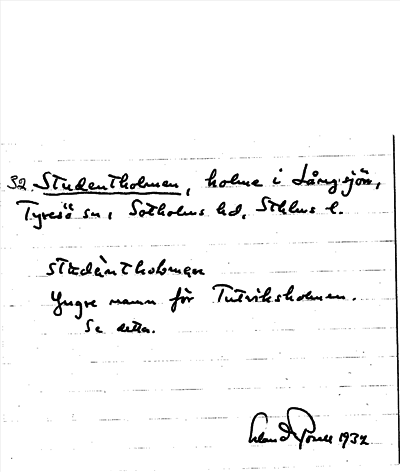 32. Studentholmen, holme i Långsjön,
Tyresö sn, Sotholms hd, Sthlms l.
studàntholman
Yngre namn för Tutviksholmen.
Se detta.
1932